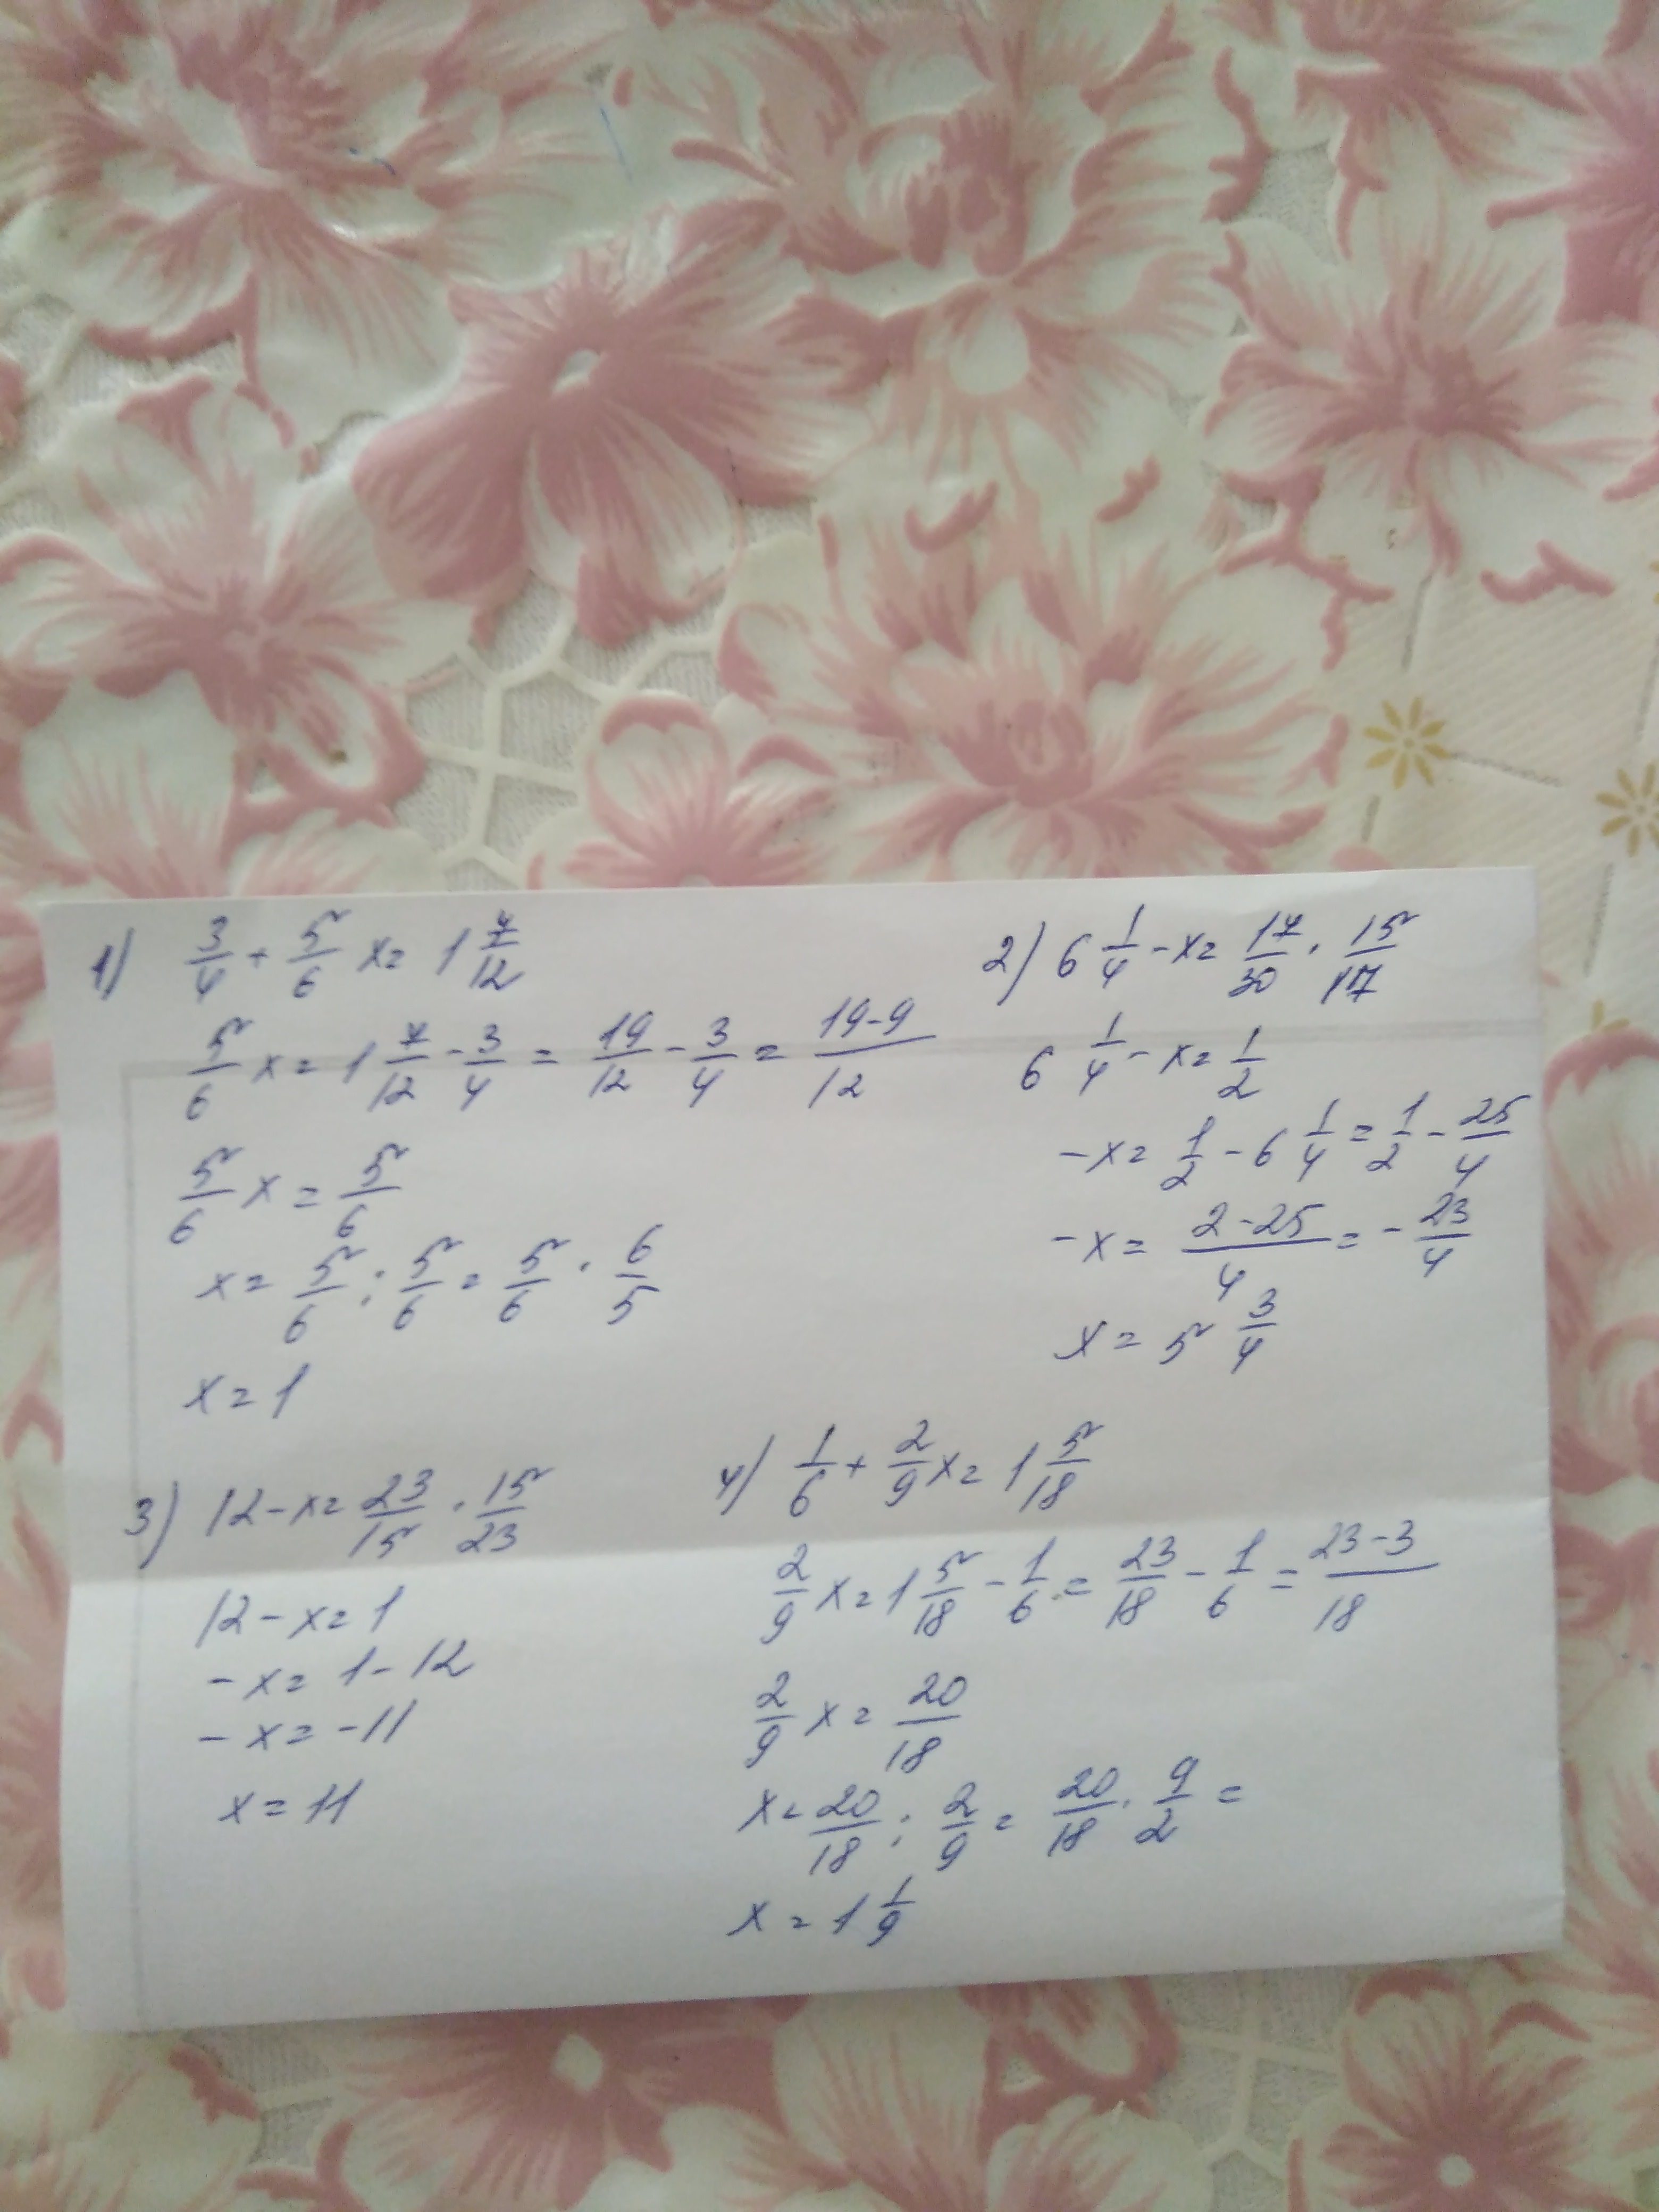 1) 3/4 + 5/6 x = 1 7/12
5/6 x = 1 7/12 - 3/4 = 19/12 - 3/4 = (19-9)/12
5/6 x = 5/6
x = 5/6 : 5/6 = 5/6 · 6/5
x = 1
2) 6 1/4 - x = 17/30 · 15/17
6 1/4 - x = 1/2
-x = 1/2 - 6 1/4 = 1/2 - 25/4
-x = (2-25)/4 = - 23/4
x = 5 3/4
3) 12 - x = 23/15 · 15/23
12 - x = 1
-x = 1 - 12
-x = -11
x = 11
4) 1/6 + 2/9 x = 1 5/18
2/9 x = 1 5/18 - 1/6 = 23/18 - 1/6 = (23-3)/18
2/9 x = 20/18
x = 20/18 : 2/9 = 20/18 · 9/2 =
x = 1 1/9